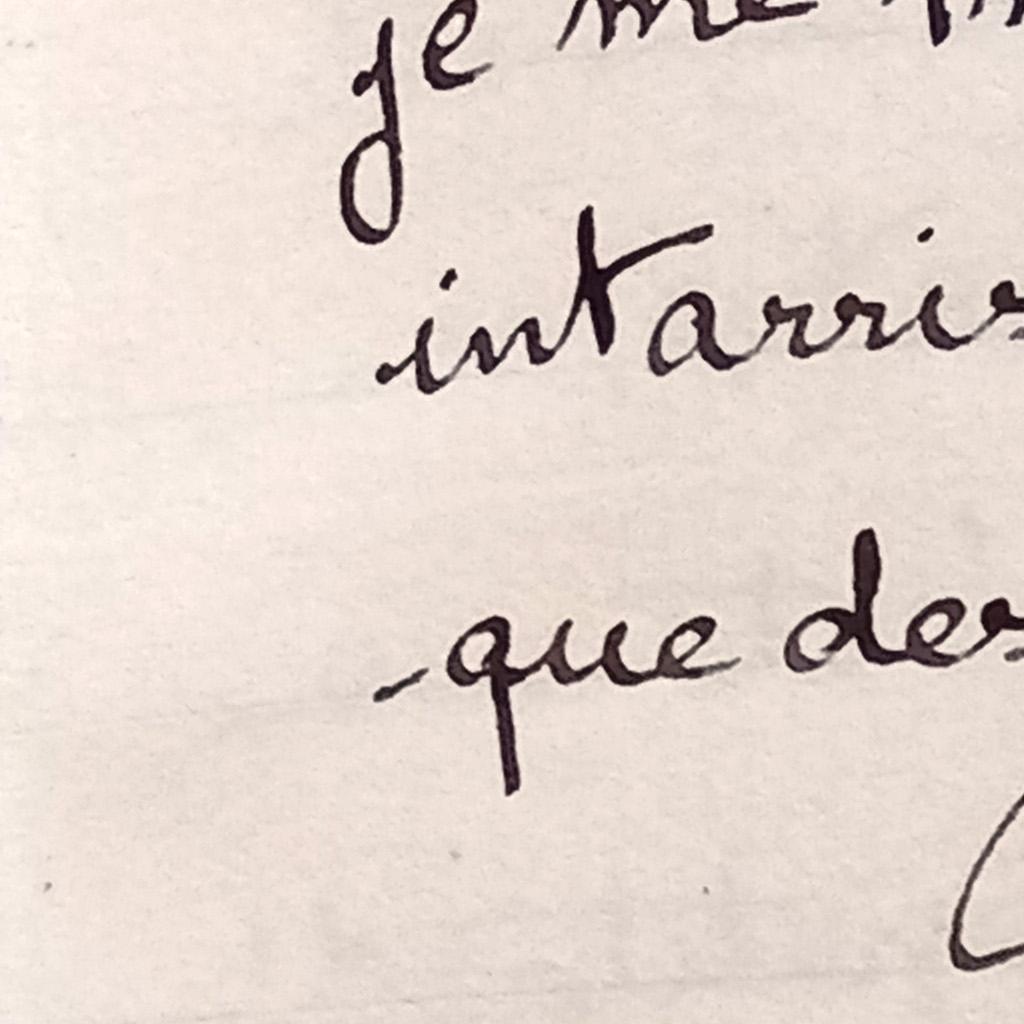 je me
intarris
que des